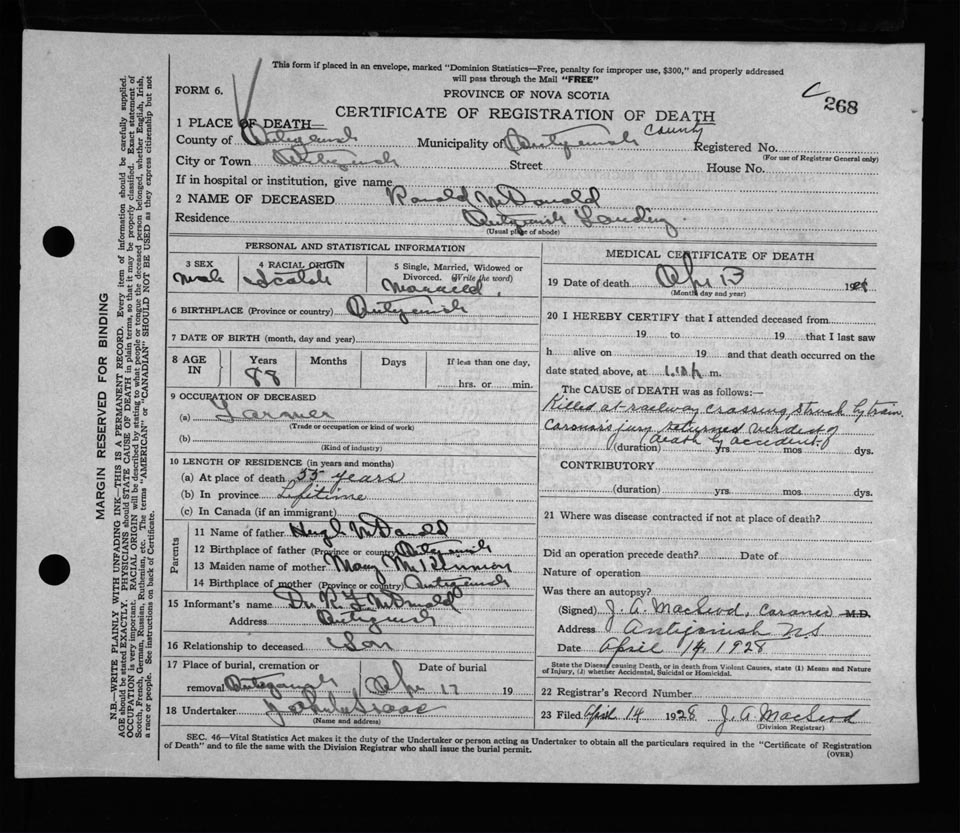 This form if placed in an envelope, marked "Dominion Statistics—Free, penalty for improper use, $300," and properly addressed
will pass through the Mail "FREE"
FORM 6.
PROVINCE OF NOVA SCOTIA
268
CERTIFICATE OF REGISTRATION OF DEATH
1 PLACE OF DEATH—
County of Antigonish Municipality of Antigonish County Registered No.
(For use of Registrar General only)
City or Town Antigonish Street House No.
If in hospital or institution, give name
2 NAME OF DECEASED Ronald McDonald
Residence Antigonish Landing
(Usual place of abode)
PERSONAL AND STATISTICAL INFORMATION
3 SEX 4 RACIAL ORIGIN 5 Single, Married, Widowed or
Divorced. (Write the word)
Male Scotch Married
6 BIRTHPLACE (Province or country) Antigonish
7 DATE OF BIRTH (month, day and year)
8 AGE IN Years Months Days If less than one day,
88 hrs. or min.
9 OCCUPATION OF DECEASED
(a) Farmer
(Trade or occupation or kind of work)
(b)
(Kind of industry)
10 LENGTH OF RESIDENCE (in years and months)
(a) At place of death 55 years
(b) In province Lifetime
(c) In Canada (if an immigrant)
Parents
11 Name of father Hugh McDonald
12 Birthplace of father (Province or country) Antigonish
13 Maiden name of mother Mary McKinnon
14 Birthplace of mother (Province or country) Antigonish
15 Informant's name Dr. R. F. McDonald
Address Antigonish
16 Relationship to deceased Son
17 Place of burial, cremation or Date of burial
removal Antigonish Apr 17 19
18 Undertaker
(Name and address)
MEDICAL CERTIFICATE OF DEATH
19 Date of death Apr 13 1928
(Month, day and year)
20 I HEREBY CERTIFY that I attended deceased from
19 to 19 that I last saw
h alive on 19 and that death occurred on the
date stated above, at m.
The CAUSE of DEATH was as follows:—
Killed at railway crossing, struck by train.
Coroner's jury returned verdict of
(death by accident)
(duration) yrs. mos. dys.
CONTRIBUTORY
(duration) yrs. mos. dys.
21 Where was disease contracted if not at place of death?
Did an operation precede death? Date of
Nature of operation
Was there an autopsy?
(Signed) J. A. MacLeod, Coroner M.D.
Address Antigonish NS
Date April 14, 1928
State the Disease causing Death, or in death from Violent Causes, state (1) Means and Nature
of Injury, (2) whether Accidental, Suicidal or Homicidal.
22 Registrar's Record Number
23 Filed April 14 1928 J. A. MacLeod
(Division Registrar)
SEC. 46—Vital Statistics Act makes it the duty of the Undertaker or person acting as Undertaker to obtain all the particulars required in the "Certificate of Registration
of Death" and to file the same with the Division Registrar who shall issue the burial permit.
(OVER)
MARGIN RESERVED FOR BINDING
N.B.—WRITE PLAINLY WITH UNFADING INK—THIS IS A PERMANENT RECORD. Every item of information should be carefully supplied.
AGE should be stated EXACTLY. PHYSICIANS should STATE CAUSE OF DEATH in plain terms, so that it may be properly classified. Exact statement of
OCCUPATION is very important. RACIAL ORIGIN will be described by stating to what people or tongue the deceased person belonged, whether English, Irish,
Scotch, French, German, Russian, Ruthenian, etc. The terms "AMERICAN" or "CANADIAN" SHOULD NOT BE USED as they express citizenship but not
a race or people. See instructions on back of Certificate.